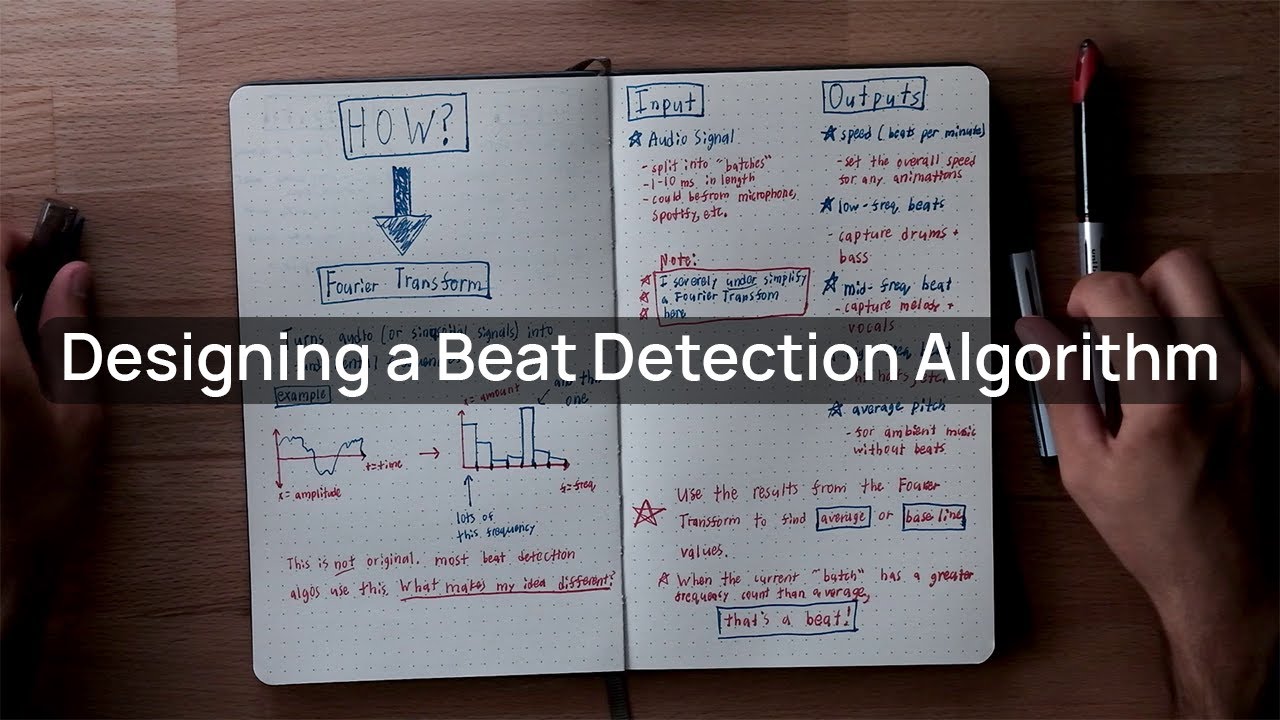 HOW?
Fourier Transform
Turns audio (or sinusoidal signals) into
Designing a Beat Detection Algorithm
example
x = amount
one
t=time
x = amplitude
f=freq
lots of
this frequency
This is not original. most beat detection
algos use this. What makes my idea different?
Input
Audio Signal
- split into "batches"
- 1-10 ms in length
- could be from microphone,
spotify, etc.
Note:
I severely under simplify
a Fourier Transfom
here
Outputs
speed (beats per minute)
- set the overall speed
for any animations
low-freq beats
- capture drums +
bass
mid-freq beat
- capture melody +
vocals
average pitch
- for ambient music
without beats
Use the results from the Fourier
Transform to find average or base line
values.
When the current "batch" has a greater
frequency count than average,
that's a beat!
uni